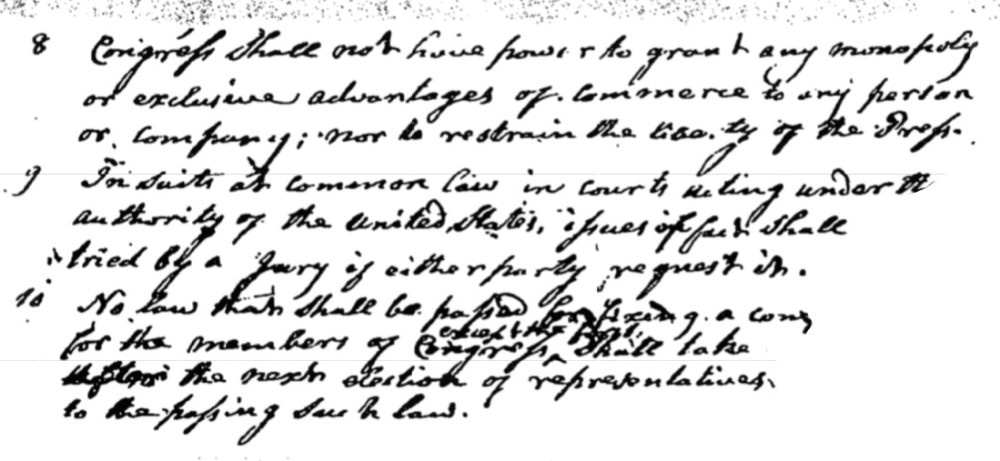 8 Congress shall not have power to grant any monopoly
or exclusive advantages of commerce to any person
or company; nor to restrain the liberty of the Press.
9 In suits at common law in courts acting under the
authority of the United States, issues of fact shall
tried by a Jury if either party request it.
10 No law that shall be passed for fixing a com
for the members of Congress except the first shall take
the next election of representatives
to the passing such law.